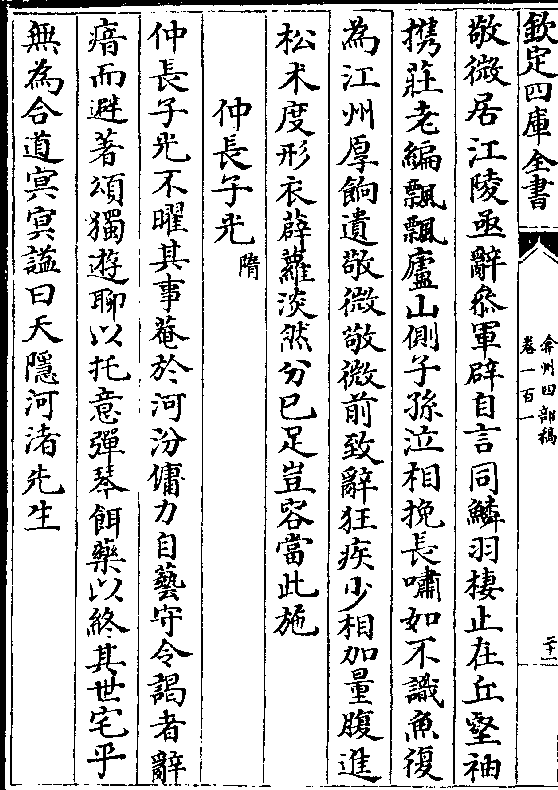 欽定四庫全書
弇州四部稿
卷一百一
二十一
敬微居江陵亟辭叅軍辟自言同鱗羽棲止在丘壑袖
携莊老編飄飄廬山側子孫泣相挽長嘯如不識魚復
為江州厚餉遺敬微敬微前致辭狂疾少相加量腹進
松朮度形衣薜蘿淡然分已足豈容當此施
仲長子光隋
仲長子光不曜其事菴於河汾傭力自藝守令謁者辭
瘖而避著頌獨遊聊以托意彈琴餌藥以終其世宅乎
無為合道㝠㝠謚曰天隱河渚先生